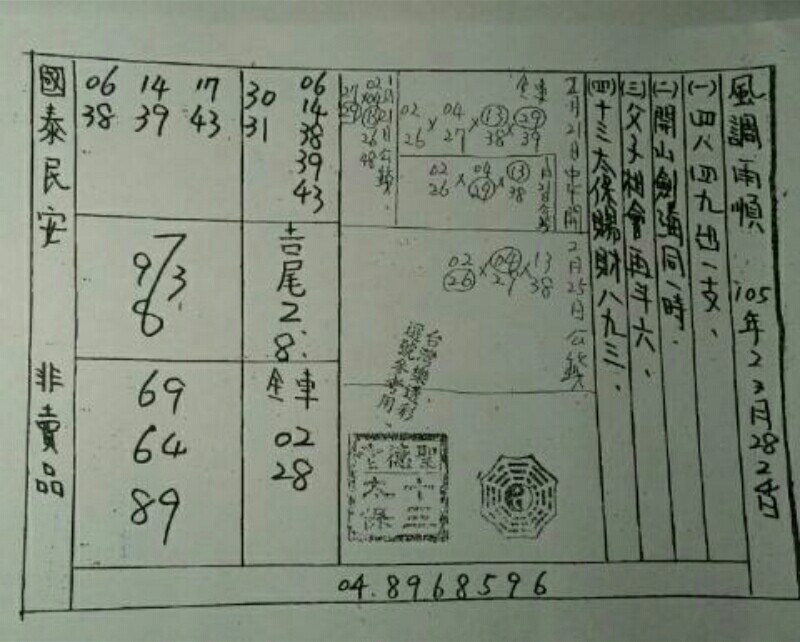 風調雨順 105年2月28
(一)四八四九出一支、
(二)開山劍海同一時、
(三)父子相會再斗六、
(四)十三太保賜財八九三、
正月21日中
2月25日公
全車
02 04 13 29
26 × 27 × 38 × 39
02 04 13
26 × 29 × 38
02 04 13
26 × 29 × 38
台灣樂透彩
選號參考用
聖德堂
十三
太保
06
30 14
31 38
39
43
吉尾2.8.
全車
02
28
06 14 17
38 39 43
7
9/3
8
69
64
89
國泰民安 非賣品
04.8968596